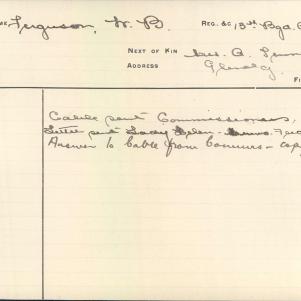 Ferguson, W. B. REG. &c 13th Bga.
NEXT OF KIN Mrs. A.
ADDRESS Glenelg.
Cable sent Commissioners,
Letter sent Lady Helen
Answer to Cable from Commrs - copy